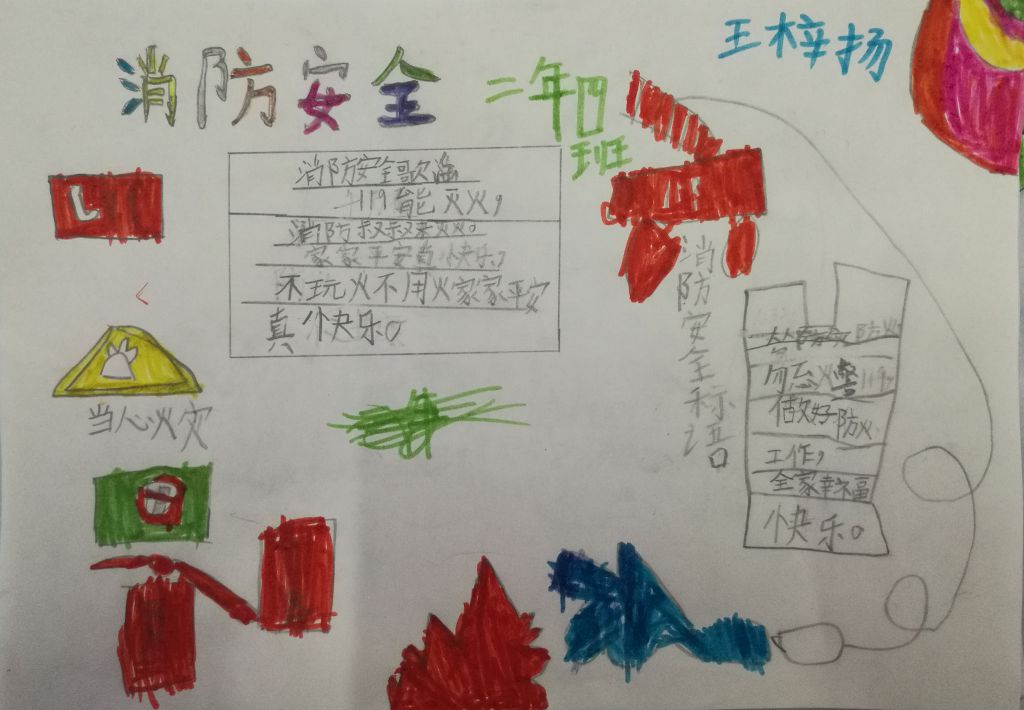 王梓扬
消防安全
二年四
班
消防安全歌
119能灭火，
消防叔叔来灭火。
家家平安真快乐，
不玩火不用火家家平安
真快乐。
消防安全标语
防火
勿忘火警119，
做好防火
工作，
全家幸福
快乐。
当心火灾